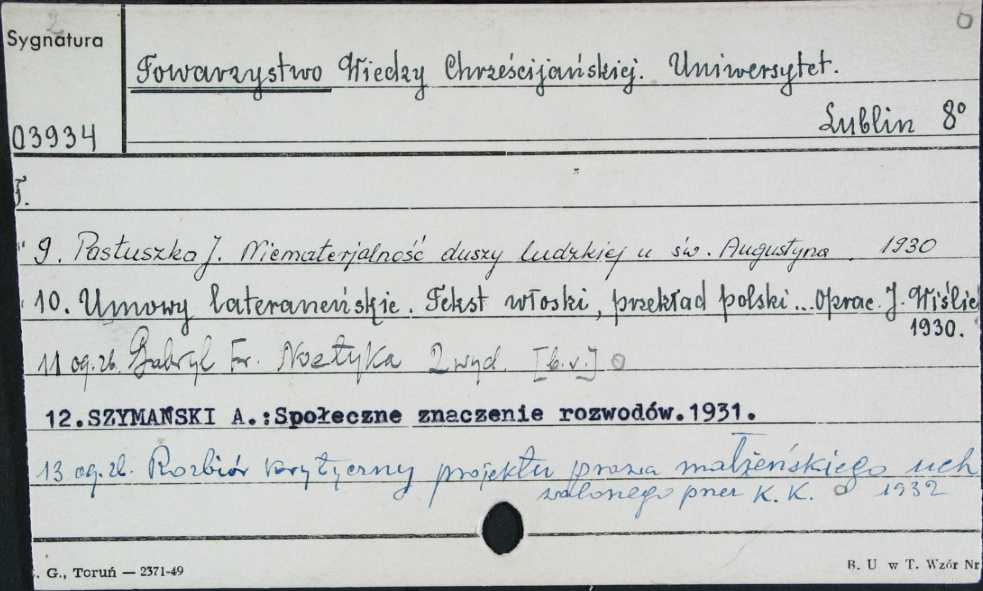 2
Sygnatura
Towarzystwo Wiedzy Chrześcijańskiej. Uniwersytet.
03934
Lublin 8°
T.
9. Pastuszka J. Niematerjalność duszy ludzkiej u św. Augustyna. 1930
10. Umowy lateraneńskie. Tekst włoski, przekład polski... Oprac. J. Wiślic
1930.
11 og. zb. Gabryl Fr. Noetyka 2 wyd. [b. r.]
12.SZYMAŃSKI A.:Społeczne znaczenie rozwodów.1931.
13 og. zb. Rozbiór krytyczny projektu prawa małżeńskiego uch
walonego przez K. K. 1932
. G., Toruń — 2371-49
B. U w T. Wzór Nr